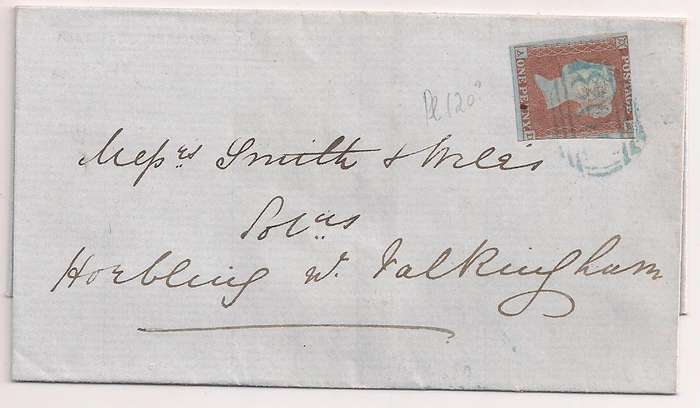 POSTAGE
A ONE PENNY E
Pl 120?
Messrs Smith & Wiles
Solrs
Horbling nr. Falkingham